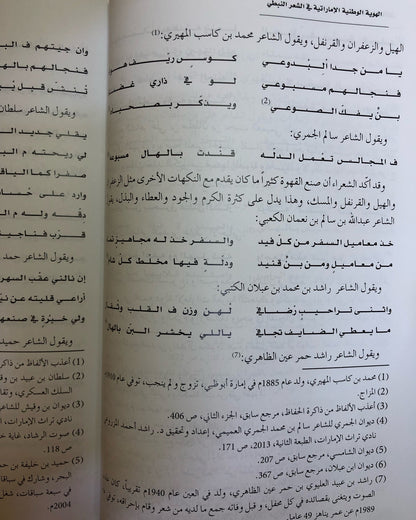 الهوية الوطنية الإماراتية في الشعر النبطي
الهيل والزعفران والقرنفل، ويقول الشاعر محمد بن كاسب المهيري:(1)
يا من جدا البدوعي كوس ريّف
فنجالهم مسبوعي لو في ذاري
بنْ يفك الصنوعي(2) ويذكر بصحـ
ويقول الشاعر سالم الجمري:
ف المجالس تعْمل الدلّه قنّدت بالهال مسبوعـ
وقد أكد الشعراء أن صنع القهوة كثيراً ما كان يقدم مع النكهات الأخرى مثل الزعفـ
والهيل والقرنفل والمسك، وهذا يدل على كثرة الكرم والجود والعطاء والبذل، يقول
الشاعر عبدالله بن سالم بن نعمان الكعبي:
خذ معاميل السفر من كل فيد والسفر خذ له مجاهيز
من معاميلٍ ومن بنْ قنيد ودلّةٍ فيها مخلّط كل
ويقول الشاعر راشد بن محمد بن عبلان الكتبي:
واثنى تراحيبٍ رضافي لهن وزن ف القلب
ما يعطي الضايف تجافي ياللي يخشر البن بالهال
ويقول الشاعر راشد حمر عين الظاهري:(7)
(1) محمد بن كاسب المهيري، ولد عام 1885م في إمارة أبوظبي، تزوج ولم ينجب، توفي عام
(2) المزاج.
(3) أعذب الألفاظ من ذاكرة الحفاظ، مرجع سابق، الجزء الثاني، ص 265.
(4) ديوان الجمري للشاعر سالم بن محمد الجمري العميمي، إعداد وتحقيق د. راشد أحمد المزروعي
نادي تراث الإمارات، الطبعة الثانية، 2013، ص 171.
(5) ديوان الشامسي، مرجع سابق، ص 207.
(6) ديوان ابن عبلان، مرجع سابق، ص 367.
(7) راشد بن عبيد العليوي بن حمر عين الظاهري، ولد في العين عام 1940م
الصوت ويتغنى بقصائده في كل محفل، و قبل وفاته جمع ما لديه من شعر وقام بإحراقه، توفي
1989م عن عمر يناهز 49 عاماً
وان جيتهم ف
فنجالهم بالهـ
تنشّق قبل
ويقول الشاعر سلطان
يقلي جديد
لي ريحته م
صفرا كما الياقـ
وارد على
دقّه وله م
قرّب فناجيـ
ويقول الشاعر حمد
إن نالني عقب السهر
أراعي قليته عن
ولي خيزّة في صنعهـ
ويقول الشاعر حميد
(1) أعذب الألفاظ من ذاكرة
(2) سلطان بن عبيد بن وقيش
السلك العسكري،
(3) ديوان بن وقيش للشاعر
نادي تراث الإمارات،
(4) صوت الرشاد، غاية
ص 118.
(5) حميد بن خليفة بن
البحر، وشارك في
في سبعة سباقات، شغل
2004م.